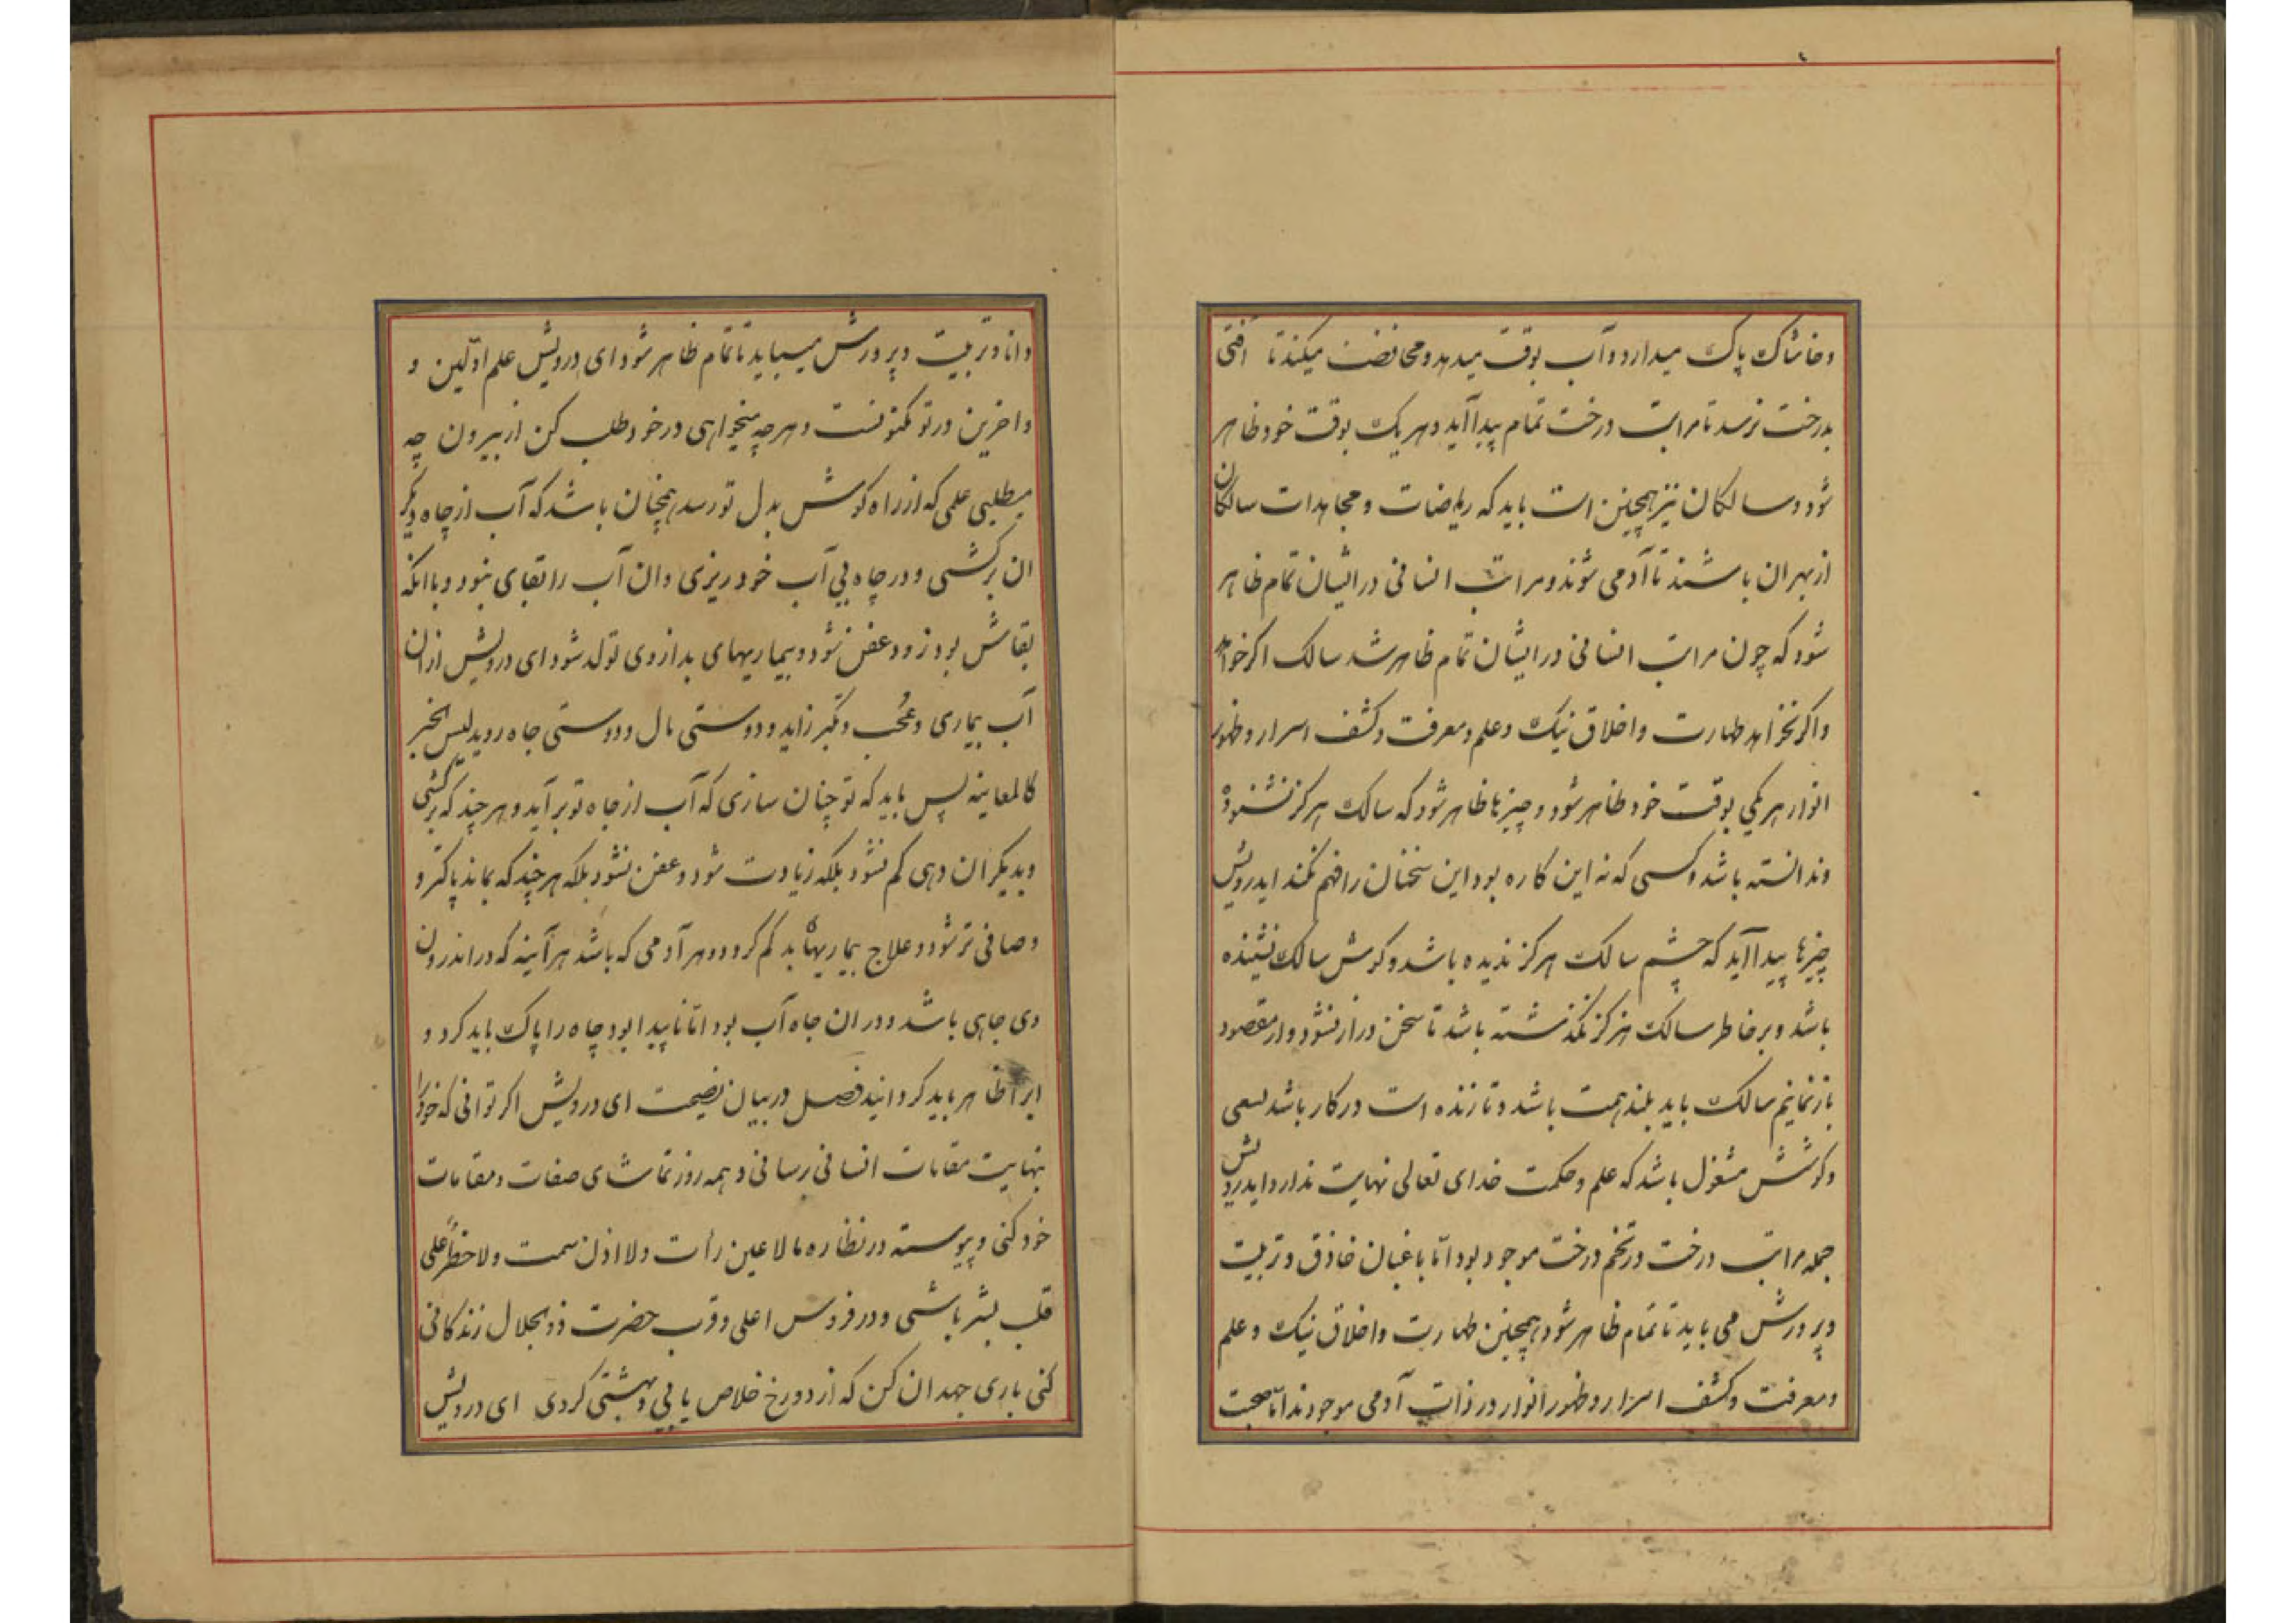 وخاشاک پاک میدارد و آب بوقت میدهد و محافضت میکند تا افتی
بدرخت نرسد تا مراتب درخت تمام پیدا آید و هر یک بوقت خود ظاهر
شود و سالکان نیز همچنین است باید که ریاضات و مجاهدات سالکان
از بهر ان باشند تا آدمی شوند و مراتب انسانی در ایشان تمام ظاهر
شود که چون مراتب انسانی در ایشان تمام ظاهر شد سالک اکر خواهد
واکر نخواهد طهارت و اخلاق نیک و علم و معرفت و کشف اسرار و ظهور
انوار هر یکی بوقت خود ظاهر شود و چیزها ظاهر شود که سالک هرکز نشنوده
وندانسته باشد و کسی که نه این کاره بود این سخنان را فهم نکند ایدرویش
چیزها پیدا آید که چشم سالک هرکز ندیده باشد و کوش سالک نشنیده
باشد و بر خاطر سالک هرکز نکذشته باشد تا سخن دراز نشود و از مقصود
باز نمانیم سالک باید بلند همت باشد و تا زنده است در کار باشد بسعی
وکوشش مشغول باشد که علم و حکمت خدای تعالی نهایت ندارد ایدرویش
جمله مراتب درخت در تخم درخت موجود بود اما باغبان خاذق و تربیت
وپرورش می باید تا تمام ظاهر شود همچنین طهارت و اخلاق نیک و علم
ومعرفت و کشف اسرار و ظهور انوار در ذات آدمی موجودند اما صحبت
دانا و تربیت و پرورش میباید تا تمام ظاهر شود ای درویش علم اوّلین و
واخرین در تو مکنونست و هر چه میخواهی در خود طلب کن از بیرون چه
میطلبی علمی که از راه کوش بدل تو رسد همچنان باشد که آب از چاه دیکر
ان برکشی و در چاه بی آب خود ریزی و ان آب را بقای نبود و با انکه
بقاش بود زود عفن شود و بیماریهای بد از وی تولد شود ای درویش از ان
آب بیماری و عجُب و تکبر زاید و دوستی مال و دوستی جاه روید لیس الخبر
کالمعاینه پس باید که تو چنان سازی که آب از چاه تو بر آید و هر چند که برکشی
وبدیکران دهی کم نشود بلکه زیادت شود و عفن نشود بلکه هر چند که بماند پاکتر و
وصافی تر شود و علاج بیماریهاء بد کم کردد و هر آدمی که باشد هر آینه که در اندرون
وی چاهی باشد و در ان چاه آب بود اما ناپیدا بود چاه را پاک باید کرد و
ابرا ظاهر باید کردانید فصل در بیان نصیحت ای درویش اکر توانی که خود را
بنهایت مقامات انسانی رسانی و همه روز تماشای صفات و مقامات
خود کنی و پیوسته در نظاره ما لا عین رأت ولا اذن سمعت ولا خطر علی
قلب بشر باشی و در فردوس اعلی و قرب حضرت ذو الجلال زندکانی
کنی باری جهد ان کن که از دوزخ خلاص یابی و بهشتی کردی ای درویش